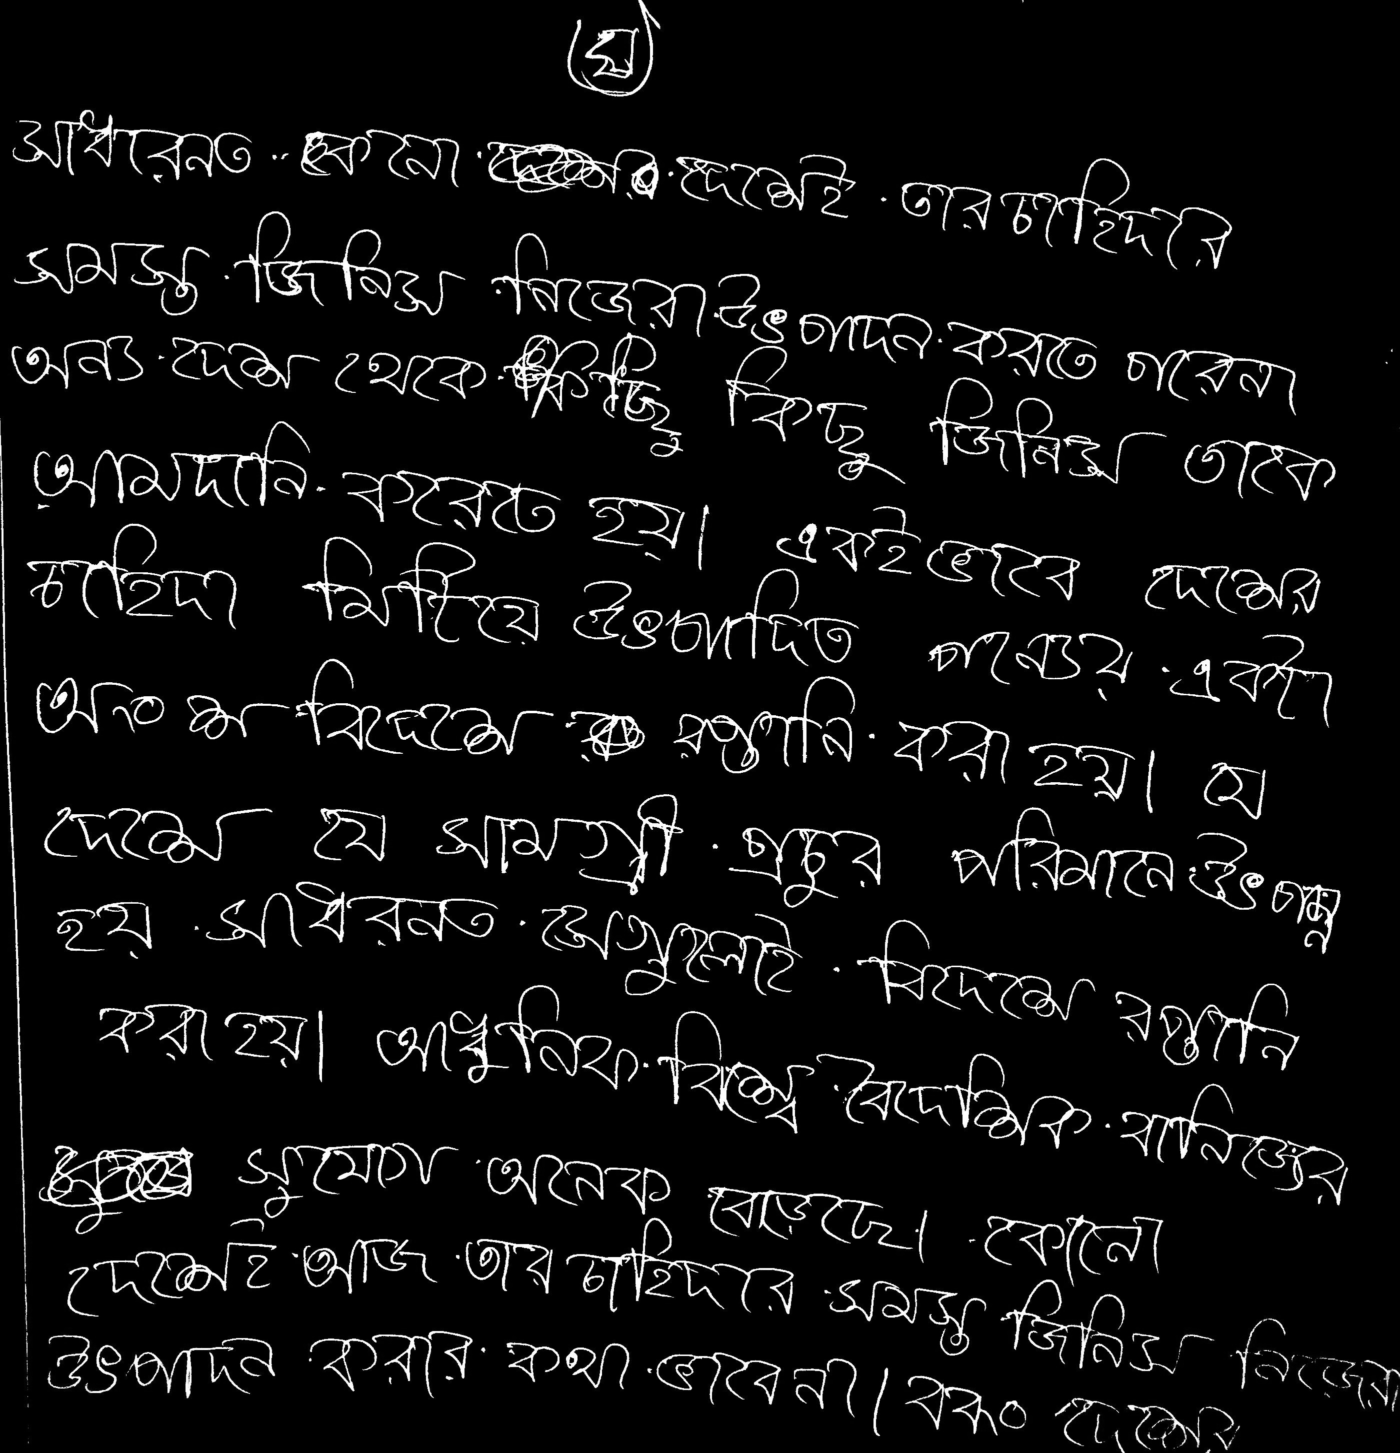 ঘ
সাধরেনত কোনো দেশেই তার চাহিদার
সমস্ত জিনিস নিজেরা উৎপাদন করতে পারেনা
অন্য দেশ থেকে কিছু জিনিস তাকে
আমদানি করেতে হয়। একইভাবে দেশের
চাহিদা মিটিয়ে উৎপাদিত পন্যের একটা
অংশ বিদেশে রপ্তানি করা হয়। যে
দেশে যে সামগ্রী প্রচুর পরিমানে উৎপন্ন
হয় সাধরনত সেগুলোই বিদেশে রপ্তানি
করা হয়। আধুনিক বিশ্বে বৈদেশিক বানিজ্যের
সুযোগ অনেক বেড়েছে। কোনো
দেশেই আজ তার চাহিদার সমস্ত জিনিস নিজেরা
উৎপাদন করার কথা ভাবেনা। বরং দেশের